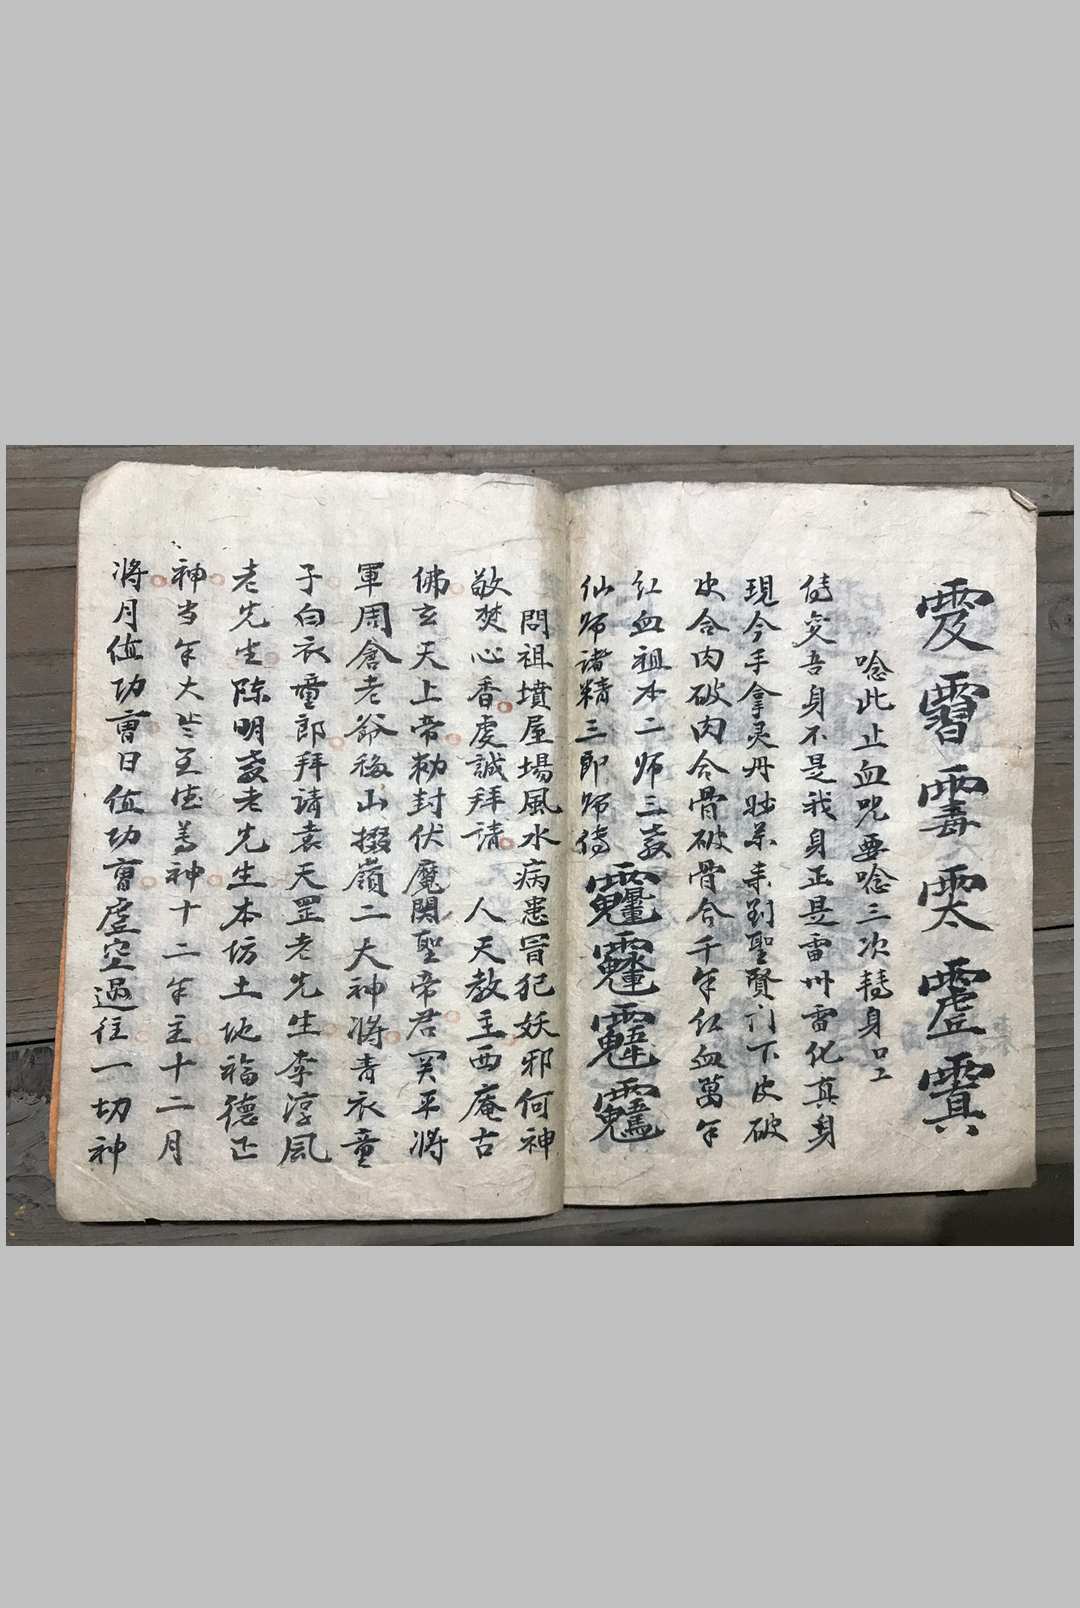 唸此止血咒要唸三次
吾身不是我身正是雷州雷化真身
現今手拿灵丹妙药来到聖賢门下皮破
皮合肉破肉合骨破骨合千年红血萬年
红血祖本二师三
仙师諸精三郎师傅
問祖墳屋場風水病患冒犯妖邪何神
敬焚心香虔誠拜請人天教主西庵古
佛玄天上帝勅封伏魔関聖帝君関平將
軍周倉老爺後山掇嶺二大神將青衣童
子白衣童郎拜請袁天罡老先生李淳風
老先生陈明老先生本坊土地福德正
神当年太岁至德尊神十二年主十二月
將月值功曹日值功曹虚空過往一切神